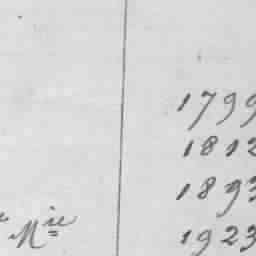 1799
1812
1893
Mie 1923